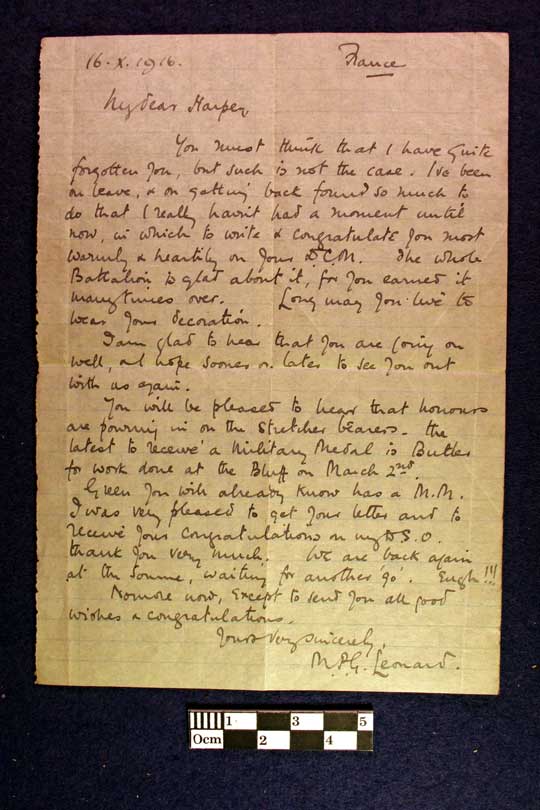 16.X.1916. France
My dear Harper,
You must think that I have quite
forgotten you, but such is not the case. I've been
on leave, & on getting back found so much to
do that I really havn't had a moment until
now, in which to write & congratulate you most
warmly & heartily on your D.C.M. The whole
Battalion is glad about it, for you earned it
many times over. Long may you live to
wear your decoration.
I am glad to hear that you are going on
well, and hope sooner or later to see you out
with us again.
You will be pleased to hear that honours
are pouring in on the stretcher bearers. The
latest to receive a Military Medal is Butler
for work done at the Bluff on March 2nd.
Green you will already know has a M.M.
I was very pleased to get your letter and to
receive your congratulations on my D.S.O.
thank you very much. We are back again
at the Somme, waiting for another 'go'. Eugh!!!
No more now, except to send you all good
wishes & congratulations.
Yours very sincerely,
M.P.G. Leonard.
0cm 1 2 3 4 5